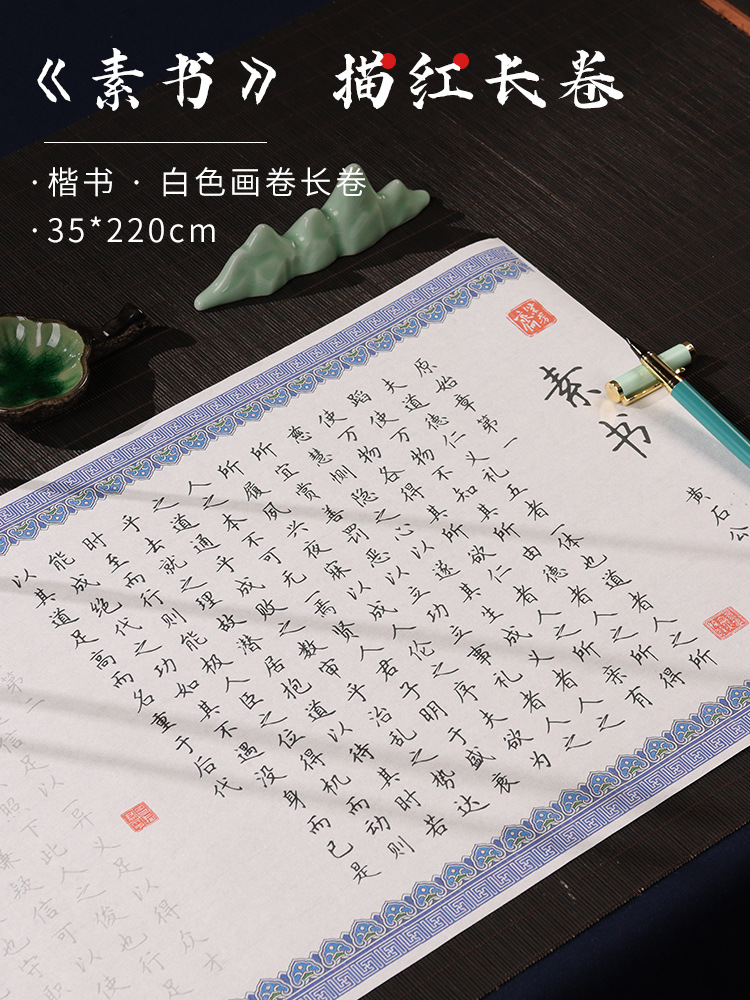 《素书》 描红长卷
· 楷书 · 白色画卷长卷
· 35*220cm
素书
黄石公
原始章第一
夫道德仁义礼五者一体也道者人之所
蹈使万物不知其所由德者人之所得
使万物各得其所欲仁者人之所亲有
慈慧恻隐之心以遂其生成义者人之
所宜赏善罚恶以立功立事礼者人之
所履夙兴夜寐以成人伦之序夫欲为
人之本不可无一焉贤人君子明于盛衰
之道通乎成败之数审乎治乱之势达
乎去就之理故潜居抱道以待其时若
时至而行则能极人臣之位得机而动则
能成绝代之功如其不遇没身而已是
以其道足高而名重于后代